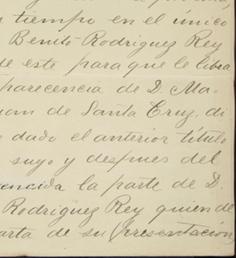 tiempo en el único
Benito Rodriguez Rey
de este para que le libra
parecencia de D. Ma-
uam de Santa Cruz, di
dado el anterior titulo
suyo y despues del
la parte de D.
Rodriguez Rey quien de
arta de su presentación